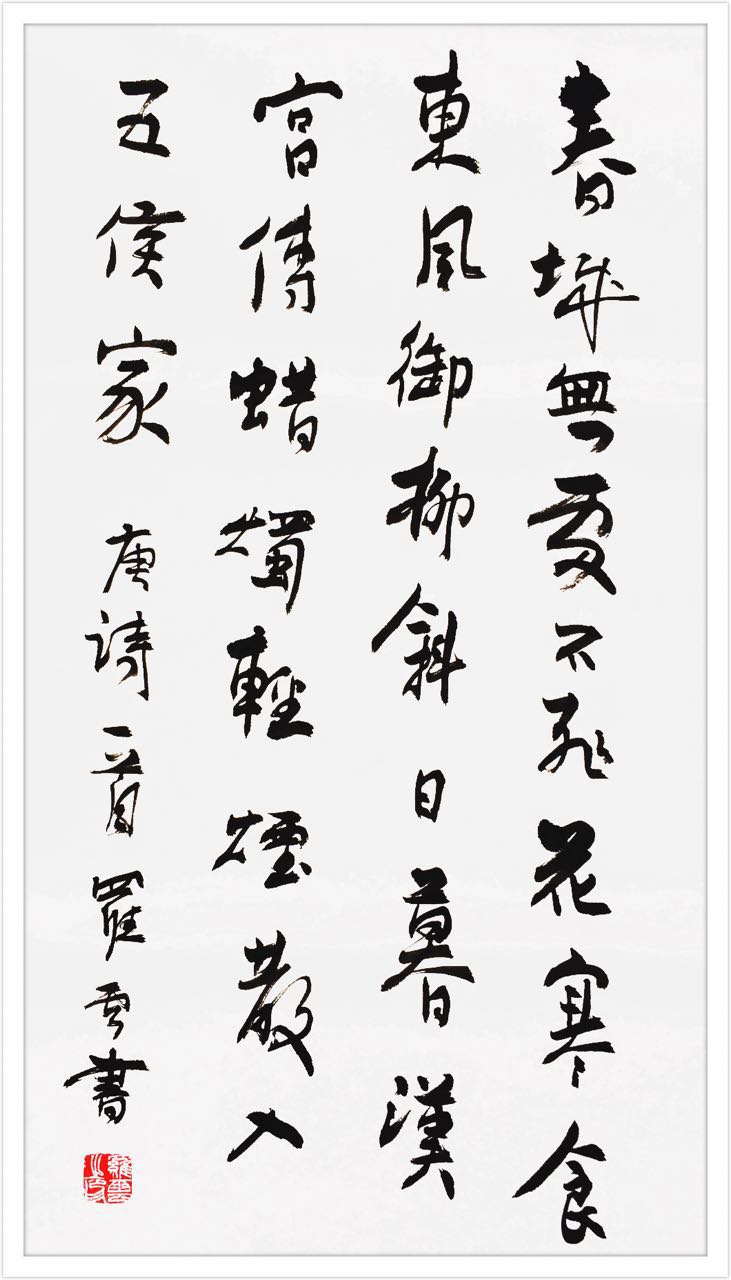 春城無處不飛花寒食
東風御柳斜日暮漢
宮傳蜡燭輕煙散入
五侯家 唐詩一首 羅雲書